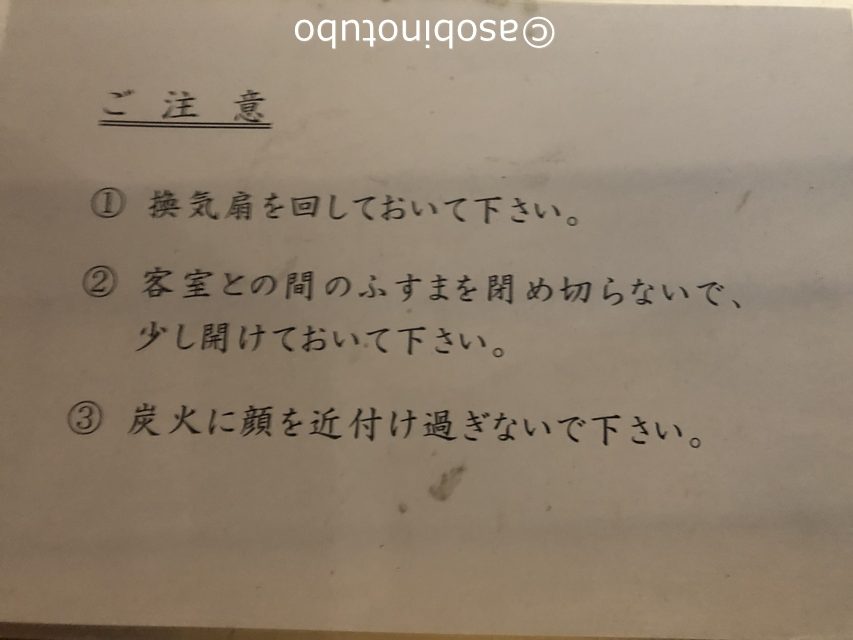 ©asobinotubo
ご注意
① 換気扇を回しておいて下さい。
② 客室との間のふすまを閉め切らないで、
少し開けておいて下さい。
③ 炭火に顔を近付け過ぎないで下さい。